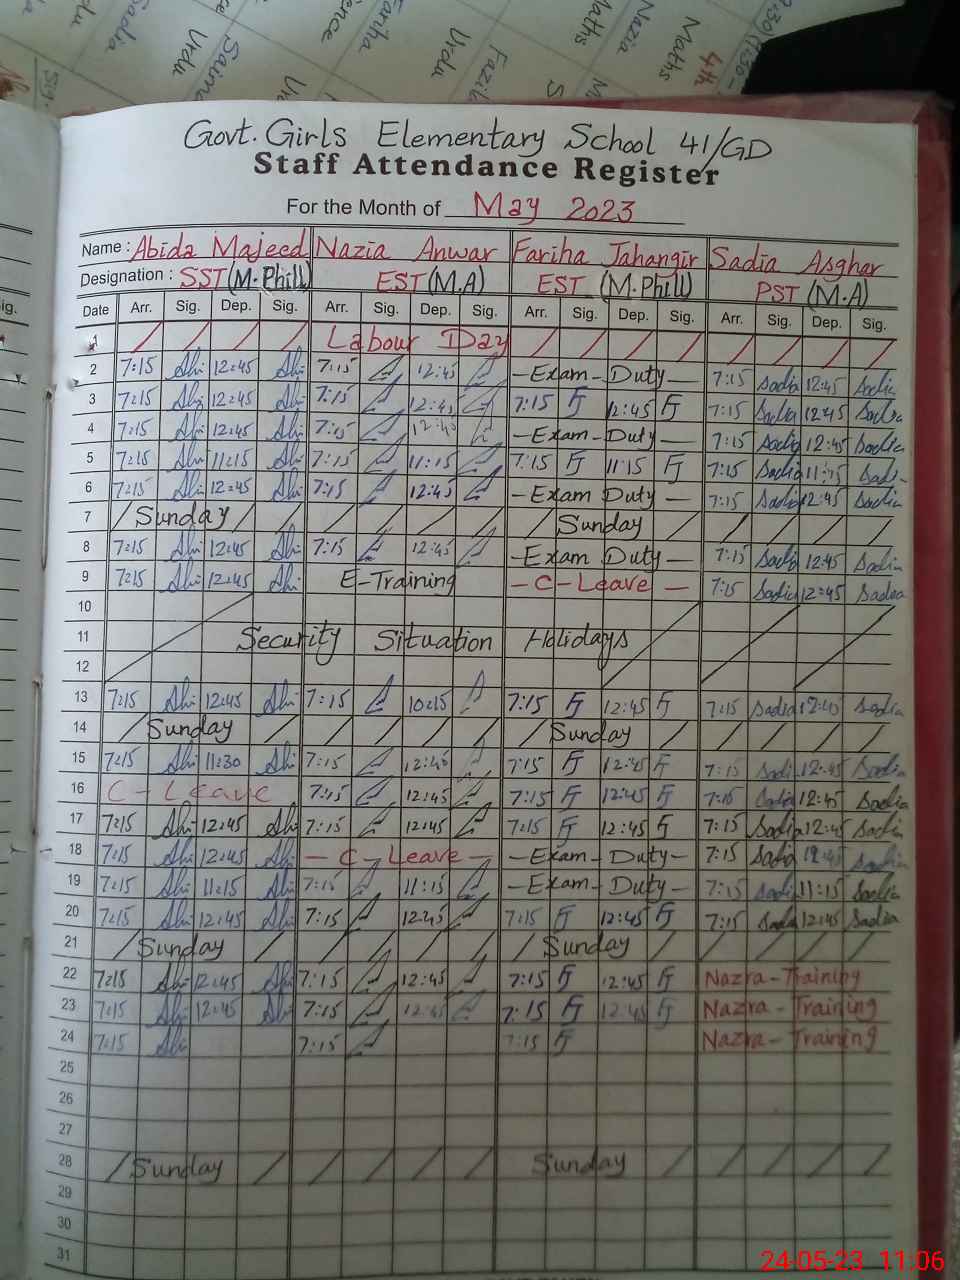 Sadia
Urdu
Saima
Urdu
Fariha
Urdu
Maths
Nazia
Maths
4th
Govt. Girls Elementary School 41/GD
Staff Attendance Register
For the Month of May 2023
Name : Abida Majeed Nazia Anwar Fariha Jahangir Sadia Asghar
Designation : SST (M.Phill) EST (M.A) EST (M.Phill) PST (M.A)
Date Arr. Sig. Dep. Sig. Arr. Sig. Dep. Sig. Arr. Sig. Dep. Sig. Arr. Sig. Dep. Sig.
1 Labour Day
2 7:15 12:45 7:15 12:45 - Exam - Duty - 7:15 Sadia 12:45 Sadia
3 7:15 12:45 7:15 12:45 7:15 FJ 12:45 FJ 7:15 Sadia 12:45 Sadia
4 7:15 12:45 7:15 12:45 - Exam - Duty - 7:15 Sadia 12:45 Sadia
5 7:15 11:15 7:15 11:15 7:15 FJ 11:15 FJ 7:15 Sadia 11:15 Sadia
6 7:15 12:45 7:15 12:45 - Exam Duty - 7:15 Sadia 12:45 Sadia
7 Sunday Sunday
8 7:15 12:45 7:15 12:45 - Exam Duty - 7:15 Sadia 12:45 Sadia
9 7:15 12:45 E-Training - C - Leave - 7:15 Sadia 12:45 Sadia
10
11 Security Situation Holidays
12
13 7:15 12:45 7:15 10:15 7:15 FJ 12:45 FJ 7:15 Sadia 12:45 Sadia
14 Sunday Sunday
15 7:15 11:30 7:15 12:45 7:15 FJ 12:45 FJ 7:15 Sadia 12:45 Sadia
16 C - Leave 7:15 12:45 7:15 FJ 12:45 FJ 7:15 Sadia 12:45 Sadia
17 7:15 12:45 7:15 12:45 7:15 FJ 12:45 FJ 7:15 Sadia 12:45 Sadia
18 7:15 12:45 - C - Leave - - Exam - Duty - 7:15 Sadia 12:45 Sadia
19 7:15 11:15 7:15 11:15 - Exam - Duty - 7:15 Sadia 11:15 Sadia
20 7:15 12:45 7:15 12:45 7:15 FJ 12:45 FJ 7:15 Sadia 12:45 Sadia
21 Sunday Sunday
22 7:15 12:45 7:15 12:45 7:15 FJ 12:45 FJ Nazra - Training
23 7:15 12:45 7:15 12:45 7:15 FJ 12:45 FJ Nazra - Training
24 7:15 7:15 7:15 FJ Nazra - Training
25
26
27
28 Sunday Sunday
29
30
31
24-05-23 11:06